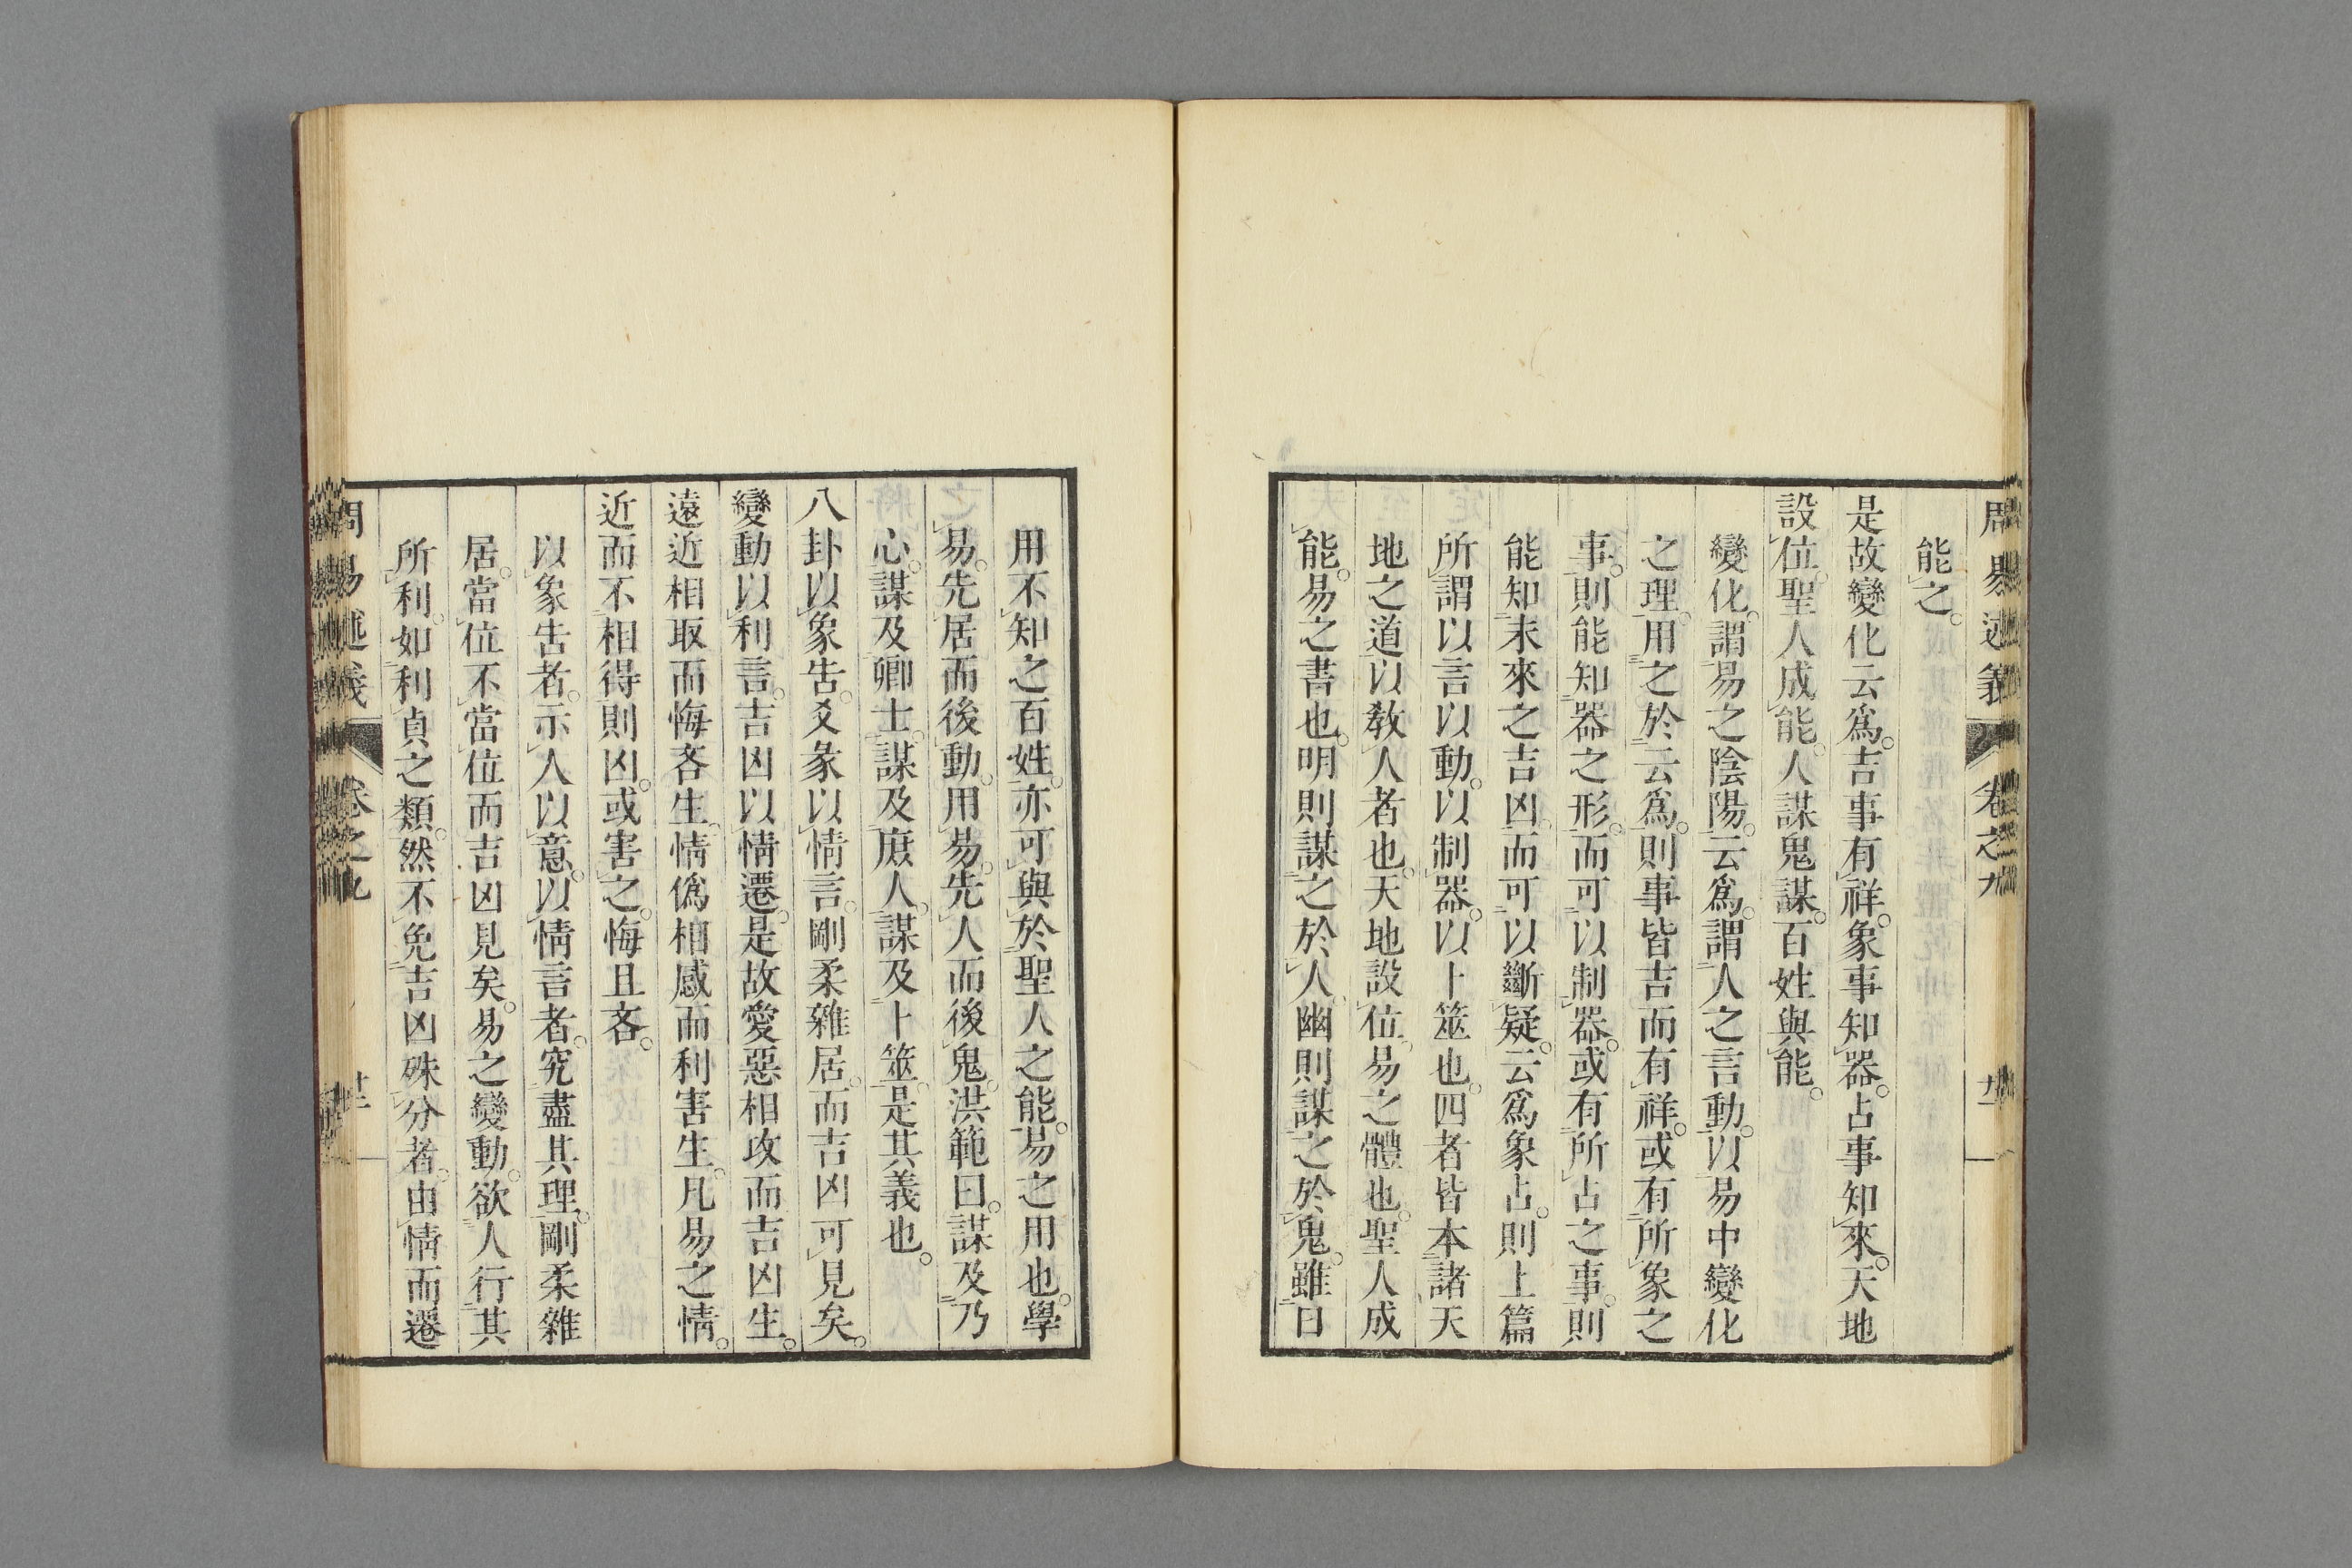 周易述義 卷之九
能之。
是故變化云爲。吉事有祥。象事知器。占事知來。天地
設位。聖人成能。人謀鬼謀。百姓與能。
變化。謂易之陰陽。云爲。謂人之言動。以易中變化
之理。用之於云爲。則事皆吉而有祥。或有所象之
事。則能知器之形。而可以制器。或有所占之事。則
能知未來之吉凶。而可以斷疑。云爲象占。則上篇
所謂以言以動。以制器。以卜筮也。四者皆本諸天
地之道。以敎人者也。天地設位。易之體也。聖人成
能。易之書也。明則謀之於人。幽則謀之於鬼。雖日
用不知之百姓。亦可與於聖人之能。易之用也。學
易。先居而後動。用易。先人而後鬼。洪範曰。謀及乃
心。謀及卿士。謀及庶人。謀及卜筮。是其義也。
八卦以象吿。爻彖以情言。剛柔雜居。而吉凶可見矣。
變動以利言。吉凶以情遷。是故愛惡相攻而吉凶生。
遠近相取而悔吝生。情僞相感而利害生。凡易之情。
近而不相得則凶。或害之。悔且吝。
以象吿者。示人以意。以情言者。究盡其理。剛柔雜
居。當位不當位而吉凶見矣。易之變動。欲人行其
所利。如利貞之類。然不免吉凶殊分者。由情而遷
周易述義 卷之九